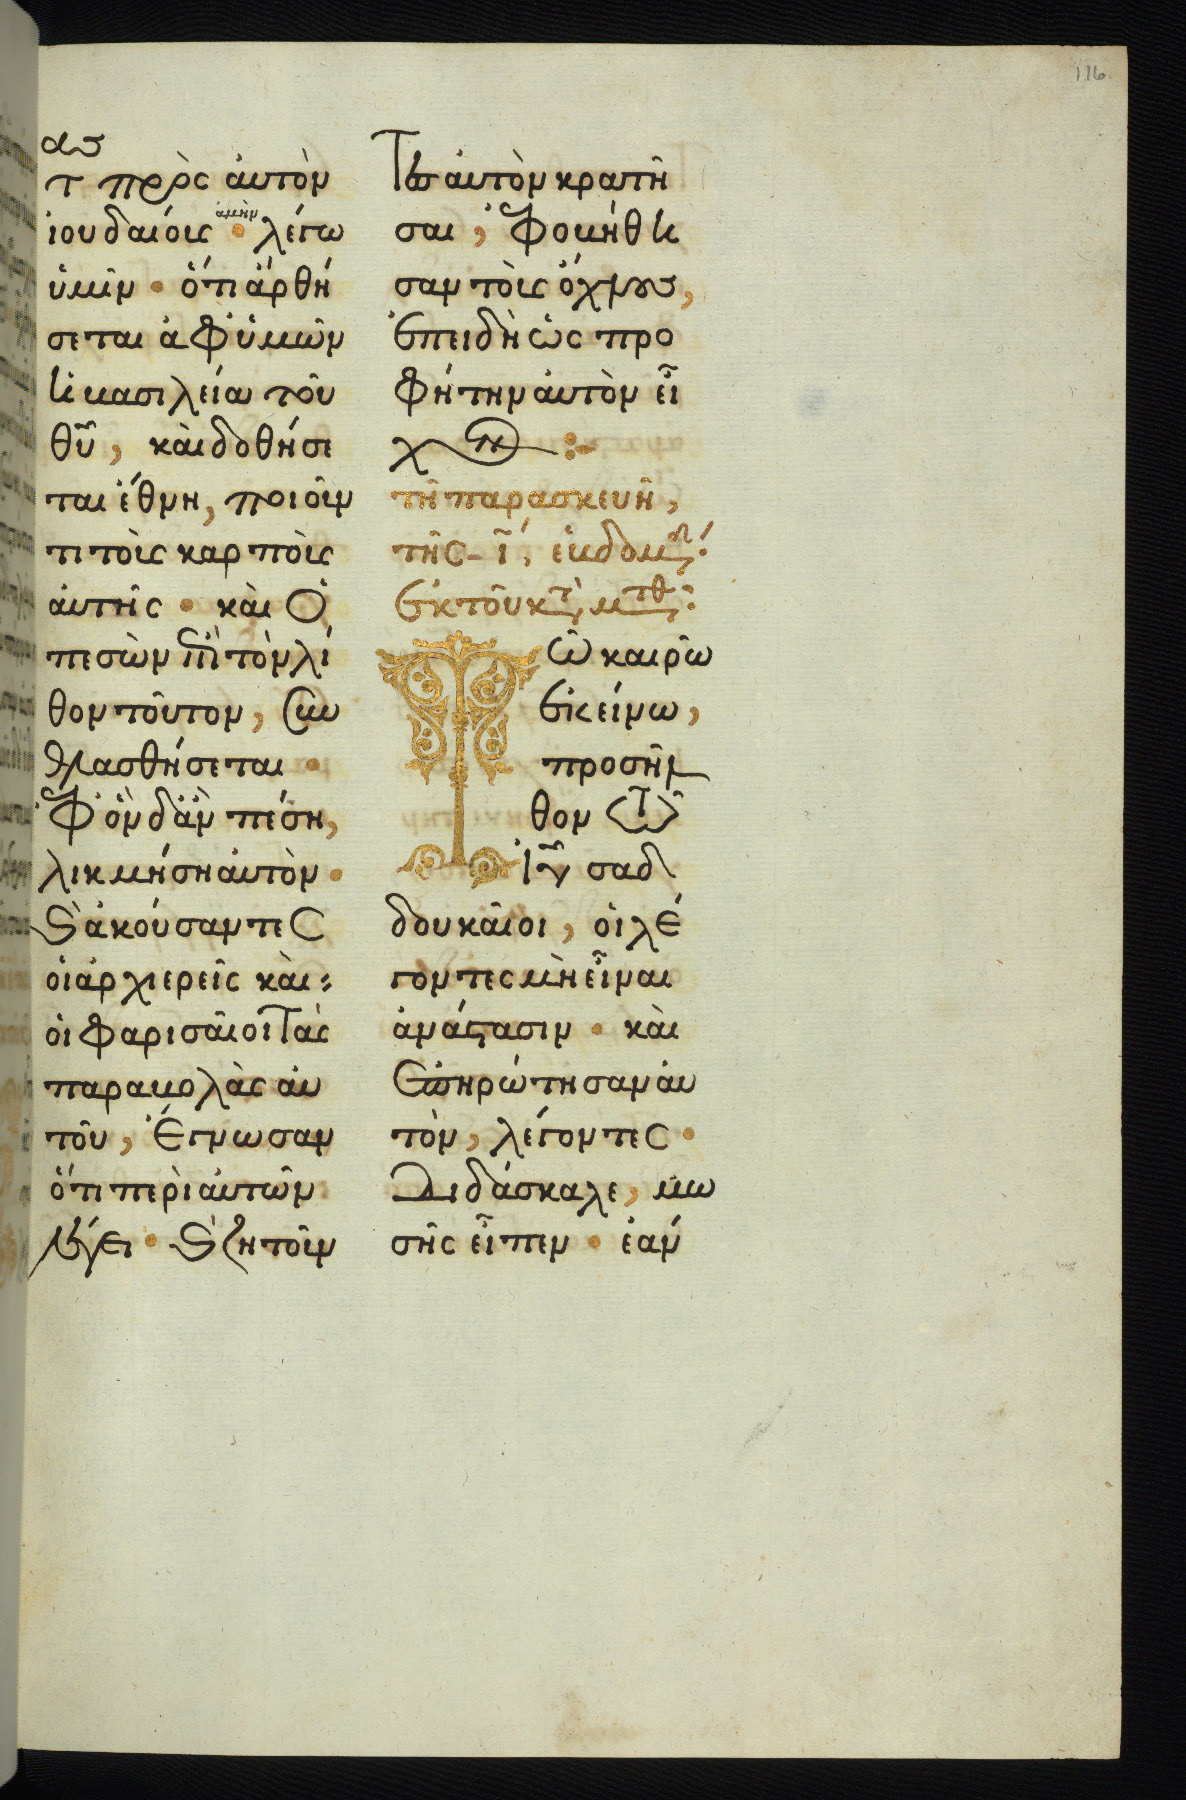 116
τ πρὸς αὐτὸν
ἰουδαίοις · ἀμὴν λέγω
ὑμῖν · ὅτι ἀρθή
σεται ἀφ' ὑμῶν
ἡ βασιλεία τοῦ
θῦ, καὶ δοθήσε
ται ἔθνη, ποιοῦν
τι τοὺς καρποὺς
αὐτῆς · καὶ ὁ
πεσὼν ἐπὶ τὸν λί
θον τοῦτον, συν
θλασθήσεται ·
ἐφ' ὃν δ' ἂν πέση,
λικμήση αὐτὸν ·
καὶ ἀκούσαντες
οἱ ἀρχιερεῖς καὶ
οἱ φαρισαῖοι τὰς
παραβολὰς αὐ
τοῦ, ἔγνωσαν
ὅτι περὶ αὐτῶν
λέγει · καὶ ζητοῦν
τες αὐτὸν κρατῆ
σαι, ἐφοβήθη
σαν τοὺς ὄχλους,
ἐπειδὴ ὡς προ
φήτην αὐτὸν εἶ
χον :-
τῆ παρασκευῆ,
τῆς ι, ἑβδομάδ
ἐκ τοῦ κτ μτθ
Τῶ καιρῶ
ἐκείνω,
προσῆλ
θον τῶ
ἰῦ σαδ
δουκαῖοι, οἱ λέ
γοντες μὴ εἶναι
ἀνάστασιν · καὶ
ἐπηρώτησαν αὐ
τὸν, λέγοντες ·
Διδάσκαλε, μω
σῆς εἶπεν · ἐάν